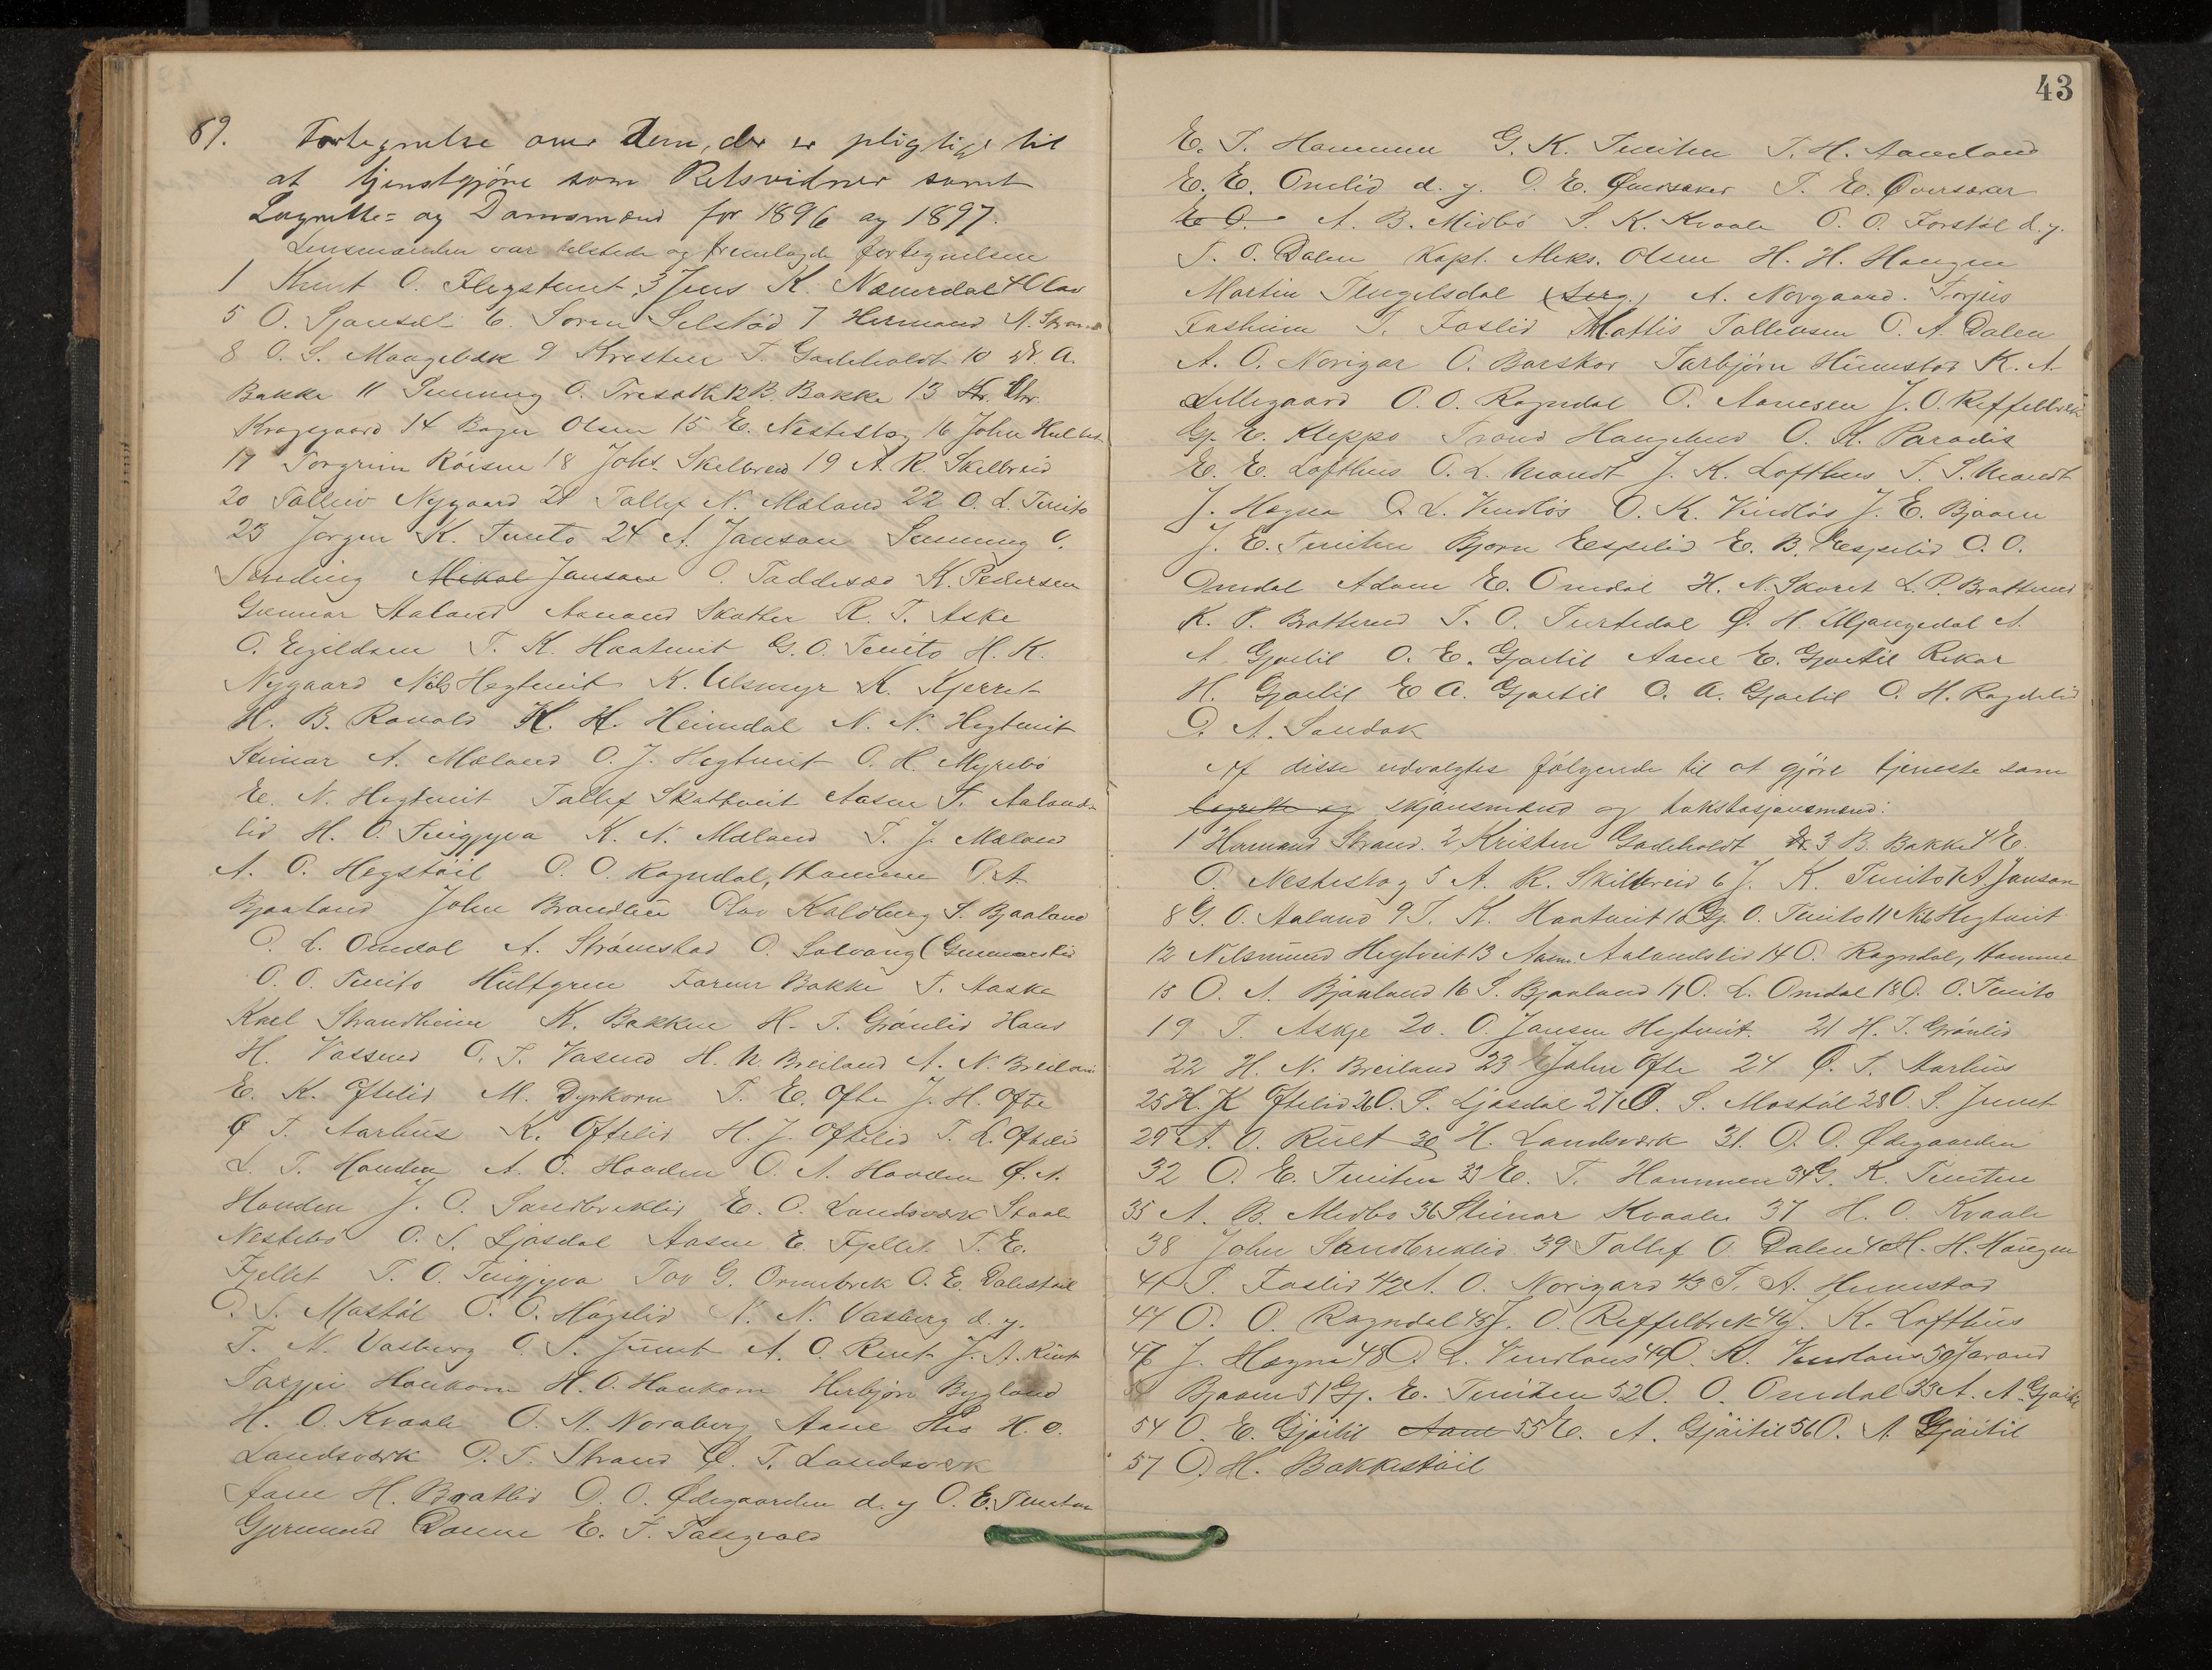 69. Fortegnelse over Dem, der er pligtige til
at tjenstgjøre som Retsvidner samt
Lagrette= og Domsmænd for 1896 og 1897.
Lensmanden var tilstede og fremlagde fortegnelsen
1 Knut O. Flegstveit, 3 Jens K. Næverdal 4 Olav
5 O. 6. Søren Selstad 7 Hermand N. Strand
8 O. S. Maugelbæk 9 Kresten T. Gardeholdt 10 A.
Bakke 11 Sunnung O. 12 B. Bakke 13 Kr. Chr.
Kragsgaard 14 Olsen 15 E. Nesteskog 16 John
17 Torgrim Røisen 18 Johs. Skelbreid 19 A. R. Skelbreid
20 Tallev Nygaard 21 Tallef N. Mæland 22 O. L. Tveito
23 Jørgen K. Tveito 24 A. Janson Sunnung O.
Mikal Janson O. K. Pedersen
Gunnar Aaland Aanund Skatter R. T. Aske
O. Egildsen T. K. Haatveit G. O. Tveito H. K.
Nygaard Nils Hegtveit K. Ulsmyr K. Kjerret
H. B. Ravald K. H. Heimdal N. N. Hegtveit
Steinar A. Mæland O. J. Hegtveit O. H. Myrebø
E. N. Hegtveit Tallef Skattveit Aasne T. Aalands-
lid H. O. Tveigjyva K. N. Mæland T. J. Mæland
A. O. Hegstøil O. O. Ragndal, Hammen O. A.
Bjaaland John Brandlien Olav Kaldberg S. Bjaaland
O. L. Omdal A. Strømstad O. Solvang (Gunnarslid
O. O. Tveito Hultgren Farver Bakke T. Aaske
Karl Strandheim K. Bakken H. T. Grønlid Hans
H. Vassend O. T. Vasend H. N. Breiland A. N. Breiland
E. K. Oftelid M. Dyrkorn T. E. Ofte J. H. Ofte
Ø T. Aarhus K. Oftelid H. J. Oftelid T. L. Oftelid
L. T. Houden A. O. Houden O. A. Houden Ø. A.
Houden J. O. Sandbreklid E. O. Landsværk Staale
Nestebø O. S. Ljosdal Aasne E. Fjellet T. E.
Fjellet T. O. Tveigjyva Tov G. Ormebrek O. E. Dalestøil
O. S. Mostøl O. O. Høgelid N. N. Vasberg d. y.
T. N. Vasberg O. S. Juvet A. O. Ruet J. A. Ruet
Tarjei Haukom H. O. Haukom Herbjørn Bygland
H. O. Kvaale O. N. Noraberg Aane H. O.
Landsværk O. T. Strand Ø. T. Landsværk
Aane H. Bratlid O. O. Ødegaarden d. y O. E. Tveiten
Gjermund Donne E. T. Tangvald
43
E. T. Hammen G. K. Tveiten T. H. Aamland
E. E. Omlid d. y. O. E. Øversaker T. E. Øversaker
E O. A. B. Midbø S. K. Kvaale O. O. Forstøl d. y.
T. O. Dalen Kapt. Aleks. Olsen H. H. Haugen
Martin Tengelsdal (Serg.) A. Norgaard. Torjus
T. Foslid Mattis Tallevsen O. A. Dalen
A. O. Norigar O. Barskor Tarbjørn Himstad K. A.
Lillegaard O. O. Ragndal O. Aanesen J. O. Reffelbrek
Gj. E. Kleppo Trond Haugelund O. K. Paradis
E. E. Lofthus O. L. Mandt J. K. Lofthus T. S. Mandt
J. Hægna O. L. Vindløs O. K. Vindløs J. E. Bjaaen
J. E. Tveiten Bjørn Espelid E. B. Espelid O. O.
Omdal Adam E. Omdal H. N. Skoret L. P. Bratterud
K. P. Batterud T. O. Turtedal Ø. H. Mjaugedal A.
A Gjøitil O. E. Gjøitil Aane E. Gjøitil Rikar
H. Gjøitil E A. Gjøitil O. A. Gjøitil O. H. Ragdelid
O. A. Landak
Af disse udvalgtes følgende til at gjøre tjeneste som
lagrette og skjønsmænd og takstskjønsmænd:
1 Hermand Strand. 2 Kristen Gardeholdt 3 B. Bakke 4 E.
O. Nesteskog 5 A. R. Skilbreid 6 J. K. Tveito 7 A. Janson
8 G. O. Aaland 9 T. K. Haatveit 10 Gj. O. Tveito 11 Nils Hegtveit
12 Nilsmund Hegtveit 13 Aasm. Aalandslid 14 O. Ragndal, Hamme
15 O. A. Bjaaland 16 S. Bjaaland 17 O. L. Omdal 18 O. O. Tveito
19 T. Askje 20. O. Jansen Hegtveit. 21 H. T. Grønlid
22 H. N. Breiland 23 John Ofte 24 Ø. T. Aarhus
25 H. K Oftelid 26 O. S. Ljosdal 27 O. S. Mostøl 28 O. S. Juvet
29 A. O. Ruet 30 H. Landsværk 31. O. O. Ødegaarden
32 O. E. Tveiten 33 E. T. Hammen 34 G. K. Tveiten
35 A. B. Midbø 36 Steinar Kvaale 37 H. O. Kvaale
38 John Sandbreklid 39 Tallef O. Dalen 40 H. H. Haugen
41 T. Foslid 42 A. O. Norigard 43 T. A. Himstad
44 O. O. Ragndal 45 J. O. Reffelbrek 46 J. K. Lofthus
47 J. Hægna 48 O. L. Vindlaus 49 O. K. Vindlaus 50 Jarand
Bjaaen 51 Gj. E. Tveiten 52 O. O. Omdal 53 A. A Gjøitil
54 O. E. Gjøitil Aane 55 E. A. Gjøitil 56 O. A. Gjøitil
57 O. H. Bakkestøil